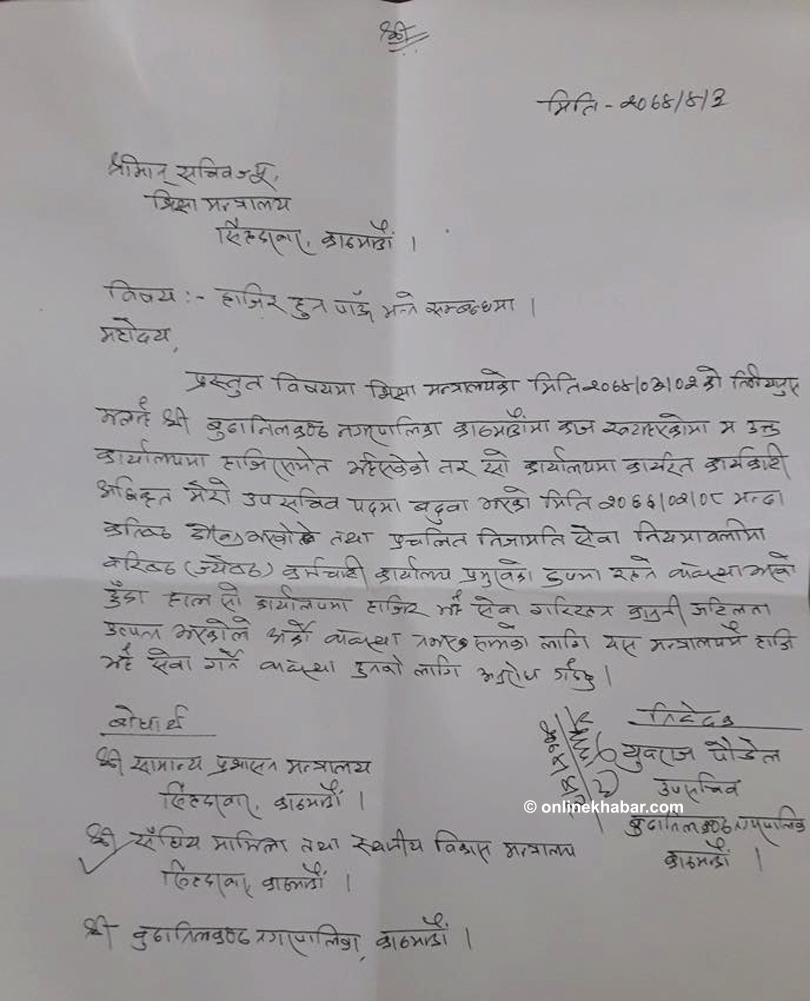 श्री
मिति - २०७४/४/३
श्रीमान् सचिवज्यू,
शिक्षा मन्त्रालय
सिंहदरबार, काठमाडौं ।
विषय :- हाजिर हुन पाऊँ भन्ने सम्बन्धमा ।
महोदय,
प्रस्तुत विषयमा शिक्षा मन्त्रालयको मिति को निर्णयानुसार
श्री बुढानिलकण्ठ नगरपालिका काठमाडौंमा काज खटाइएकोमा म उक्त
कार्यालयमा हाजिरसमेत भइसकेको तर सो कार्यालयमा कार्यरत कार्यकारी
अधिकृत मेरो उपसचिव पदमा बढुवा भएको मिति भन्दा
कनिष्ठ तथा प्रचलित निजामति सेवा नियमावलीमा
वरिष्ठ (ज्येष्ठ) कर्मचारी कार्यालय प्रमुखको रुपमा रहने व्यवस्था भएको
हुँदा हाल सो कार्यालयमा हाजिर भई सेवा गरिरहन कानुनी जटिलता
उत्पन्न भएकोले अर्को व्यवस्था नभए सम्मका लागि यस मन्त्रालयमै हाजिर
भई सेवा गर्ने व्यवस्था हुनको लागि अनुरोध गर्दछु ।
बोधार्थ
श्री सामान्य प्रशासन मन्त्रालय
सिंहदरबार, काठमाडौं ।
श्री संघिय मामिला तथा स्थानीय विकास मन्त्रालय
सिंहदरबार, काठमाडौं ।
श्री बुढानिलकण्ठ नगरपालिका, काठमाडौं ।
निवेदक
युवराज पौडेल
उपसचिव
© onlinekhabar.com
बुढानिलकण्ठ नगरपालिका
काठमाडौं ।